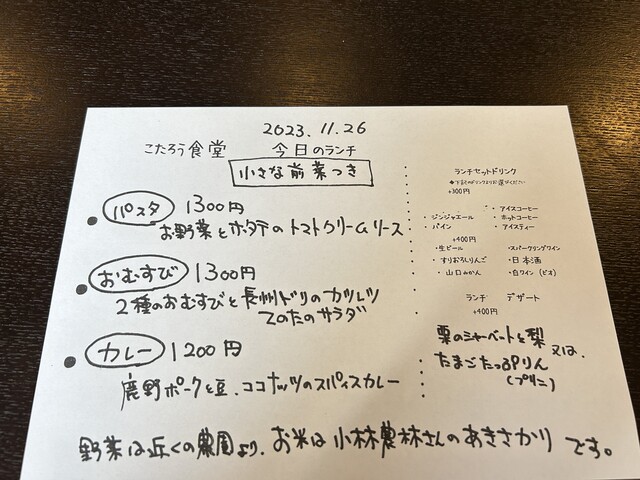 2023.11.26
こたろう食堂 今日のランチ
小さな前菜つき
パスタ 1300円
お野菜とホタテのトマトクリームソース
おむすび 1300円
2種のおむすびと長州ドリのカツレツ
そのたのサラダ
カレー 1200円
鹿野ポークと豆、ココナッツのスパイスカレー
ランチセットドリンク
◆下記のドリンクよりお選びください
+300円
・アイスコーヒー
・ジンジャエール ・ホットコーヒー
・パイン ・アイスティー
+400円
・生ビール ・スパークリングワイン
・すりおろしりんご ・日本酒
・山口みかん ・白ワイン(ビオ)
ランチ デザート
+400円
栗のシャーベットと梨
又は、
たまごたっぷりん
(プリン)
野菜は近くの農園より、お米は小林農林さんのあきさかり です。